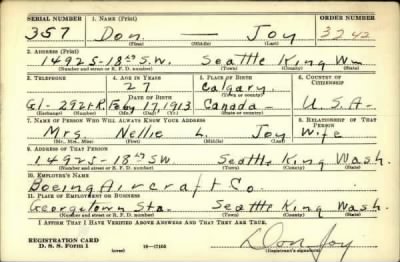 SERIAL NUMBER 1. NAME (Print) ORDER NUMBER
357 Don — Joy 3242
(First) (Middle) (Last)
2. ADDRESS (Print)
14925-18th S.W. Seattle King Wn
(Number and street or R. F. D. number) (Town) (County) (State)
3. TELEPHONE 4. AGE IN YEARS 5. PLACE OF BIRTH 6. COUNTRY OF CITIZENSHIP
27 Calgary
DATE OF BIRTH (Town or county)
Gl-2921-R. Feby 17, 1913 Canada— U.S.A-
(Exchange) (Number) (Mo.) (Day) (Yr.) (State or country)
7. NAME OF PERSON WHO WILL ALWAYS KNOW YOUR ADDRESS 8. RELATIONSHIP OF THAT PERSON
Mrs. Nellie L. Joy Wife
(Mr., Mrs., Miss) (First) (Middle) (Last)
9. ADDRESS OF THAT PERSON
14925-18th SW. Seattle King Wash.
(Number and street or R. F. D. number) (Town) (County) (State)
10. EMPLOYER'S NAME
Boeing Aircraft Co.
11. PLACE OF EMPLOYMENT OR BUSINESS
Georgetown Sta. Seattle King Wash
(Number and street or R. F. D. number) (Town) (County) (State)
I AFFIRM THAT I HAVE VERIFIED ABOVE ANSWERS AND THAT THEY ARE TRUE.
REGISTRATION CARD
D. S. S. Form 1 (over) 16—17105
Don Joy
(Registrant's signature)